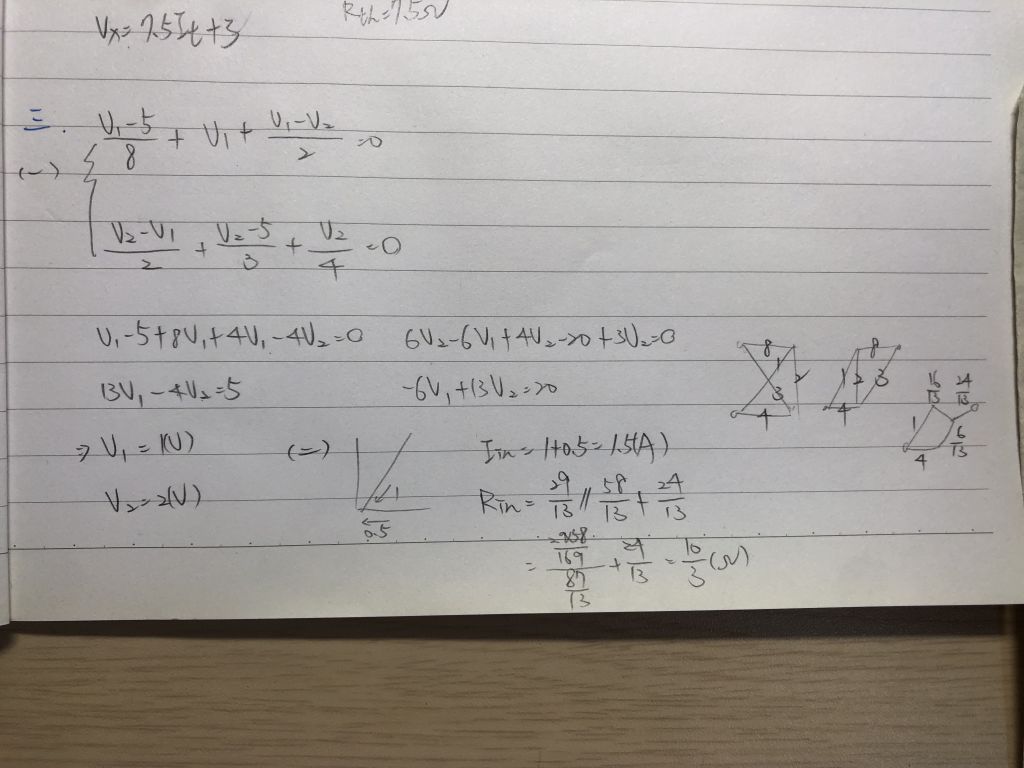 Vx = 7.5It + 3
Rth = 7.5Ω
三.
(一)
(V1-5)/8 + V1 + (V1-V2)/2 = 0
(V2-V1)/2 + (V2-5)/3 + V2/4 = 0
V1-5+8V1+4V1-4V2=0 6V2-6V1+4V2-20+3V2=0
13V1-4V2=5 -6V1+13V2=20
⇒ V1 = 1(V)
V2 = 2(V)
(二)
1
0.5
Iin = 1+0.5 = 1.5(A)
Rin = 29/13 // 58/13 + 24/13
= /169 / 87/13 + 24/13 = 10/3 (Ω)
8 1 2 3 4
8 1 2 3 4
16/13 24/13 1 6/13 4